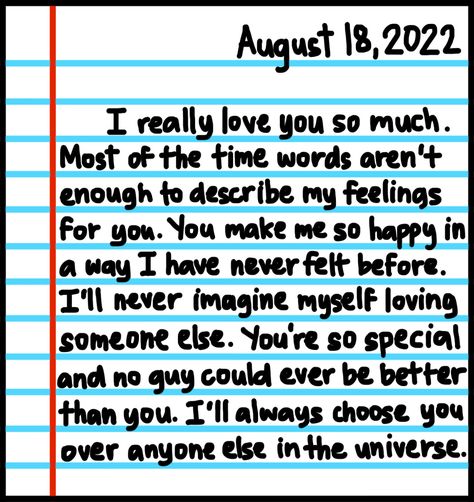 August 18, 2022
I really love you so much.
Most of the time words aren't
enough to describe my feelings
for you. You make me so happy in
a way I have never felt before.
I'll never imagine myself loving
someone else. You're so special
and no guy could ever be better
than you. I'll always choose you
over anyone else in the universe.